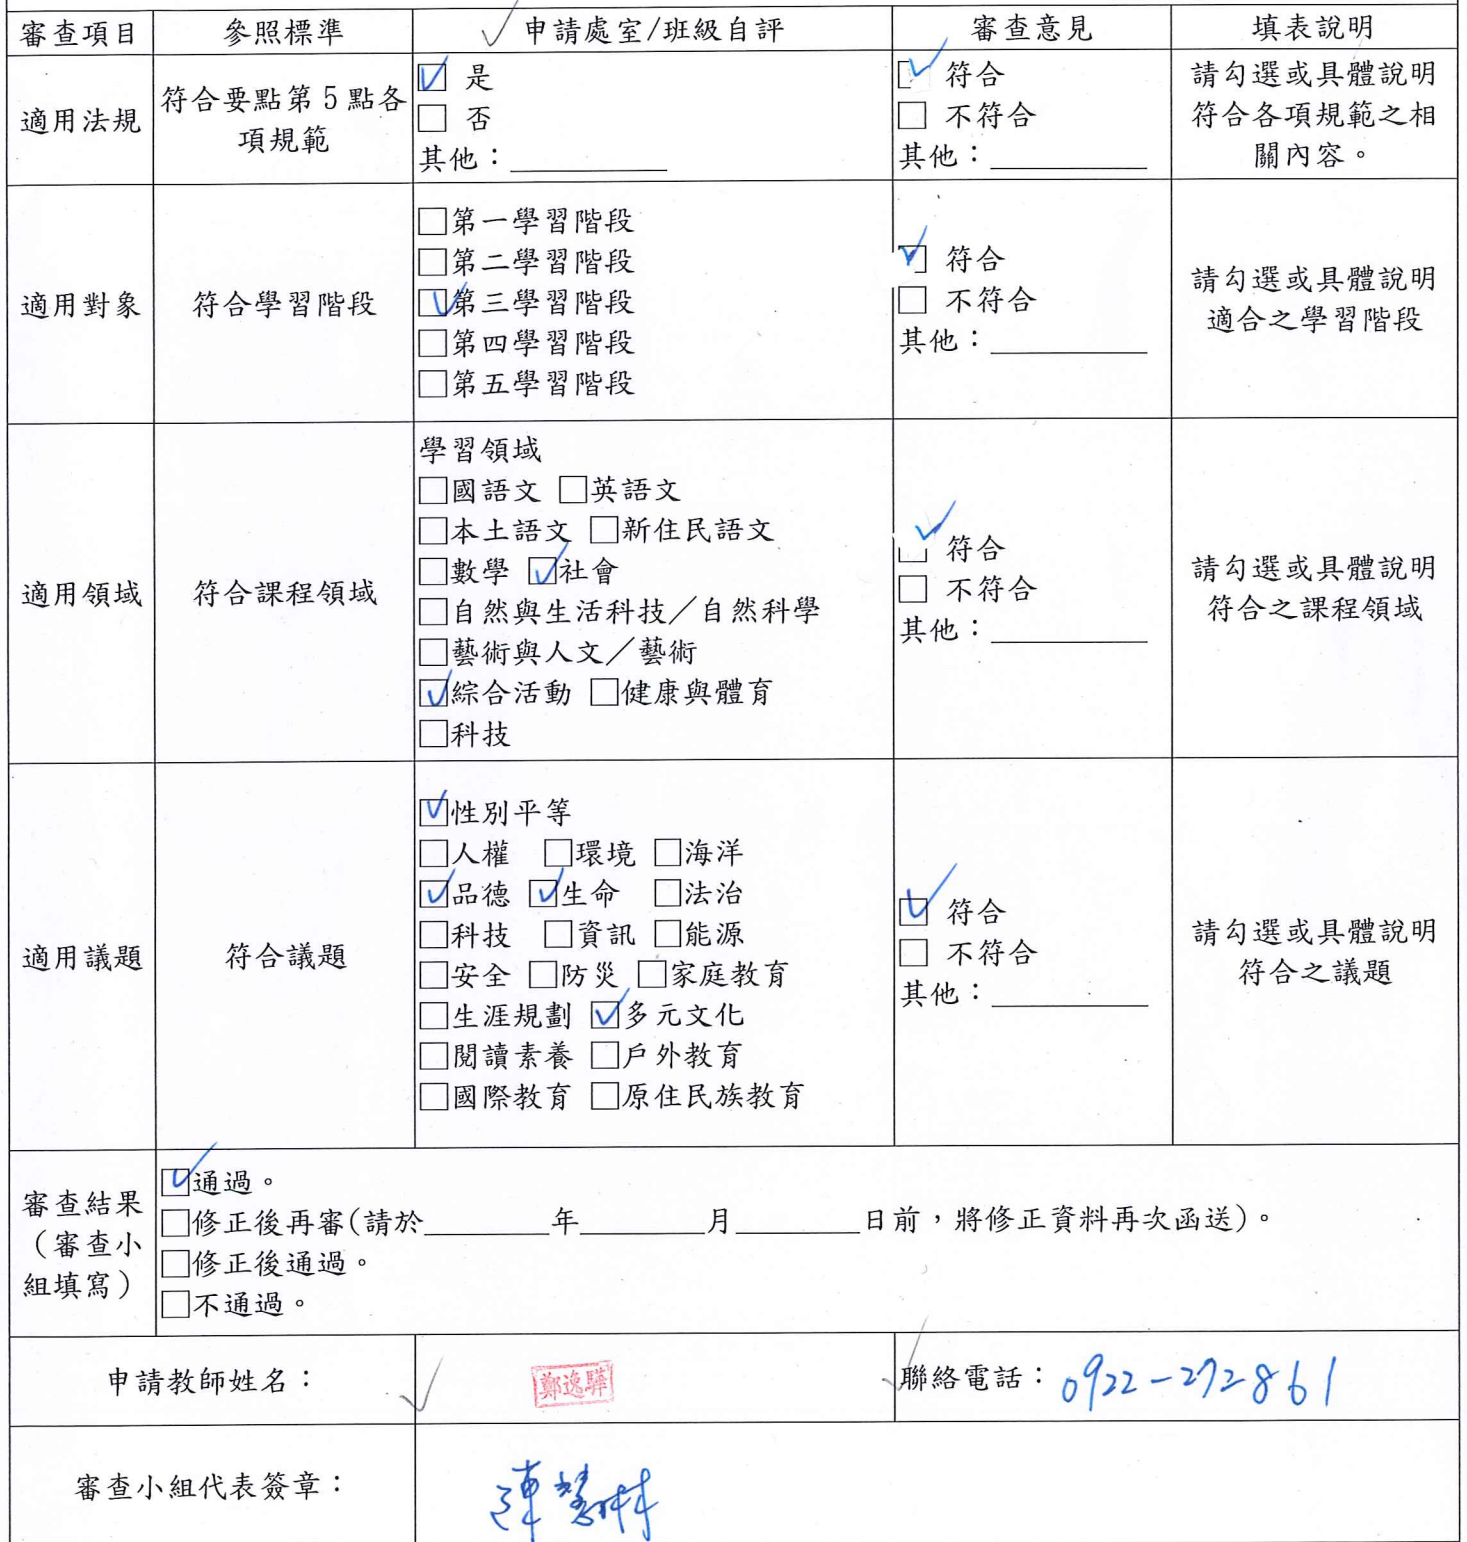 審查項目 參照標準 申請處室/班級自評 審查意見 填表說明
適用法規 符合要點第5點各項規範
☑ 是
☐ 否
其他：
☑ 符合
☐ 不符合
其他：
請勾選或具體說明
符合各項規範之相
關內容。
適用對象 符合學習階段
☐第一學習階段
☐第二學習階段
☑第三學習階段
☐第四學習階段
☐第五學習階段
☑ 符合
☐ 不符合
其他：
請勾選或具體說明
適合之學習階段
適用領域 符合課程領域
學習領域
☐國語文 ☐英語文
☐本土語文 ☐新住民語文
☐數學 ☑社會
☐自然與生活科技／自然科學
☐藝術與人文／藝術
☑綜合活動 ☐健康與體育
☐科技
☑ 符合
☐ 不符合
其他：
請勾選或具體說明
符合之課程領域
適用議題 符合議題
☑性別平等
☐人權 ☐環境 ☐海洋
☑品德 ☑生命 ☐法治
☐科技 ☐資訊 ☐能源
☐安全 ☐防災 ☐家庭教育
☐生涯規劃 ☑多元文化
☐閱讀素養 ☐戶外教育
☐國際教育 ☐原住民族教育
☑ 符合
☐ 不符合
其他：
請勾選或具體說明
符合之議題
審查結果
（審查小
組填寫）
☑通過。
☐修正後再審(請於________年________月________日前，將修正資料再次函送)。
☐修正後通過。
☐不通過。
申請教師姓名： 鄭逸驊 聯絡電話：0922-272861
審查小組代表簽章：